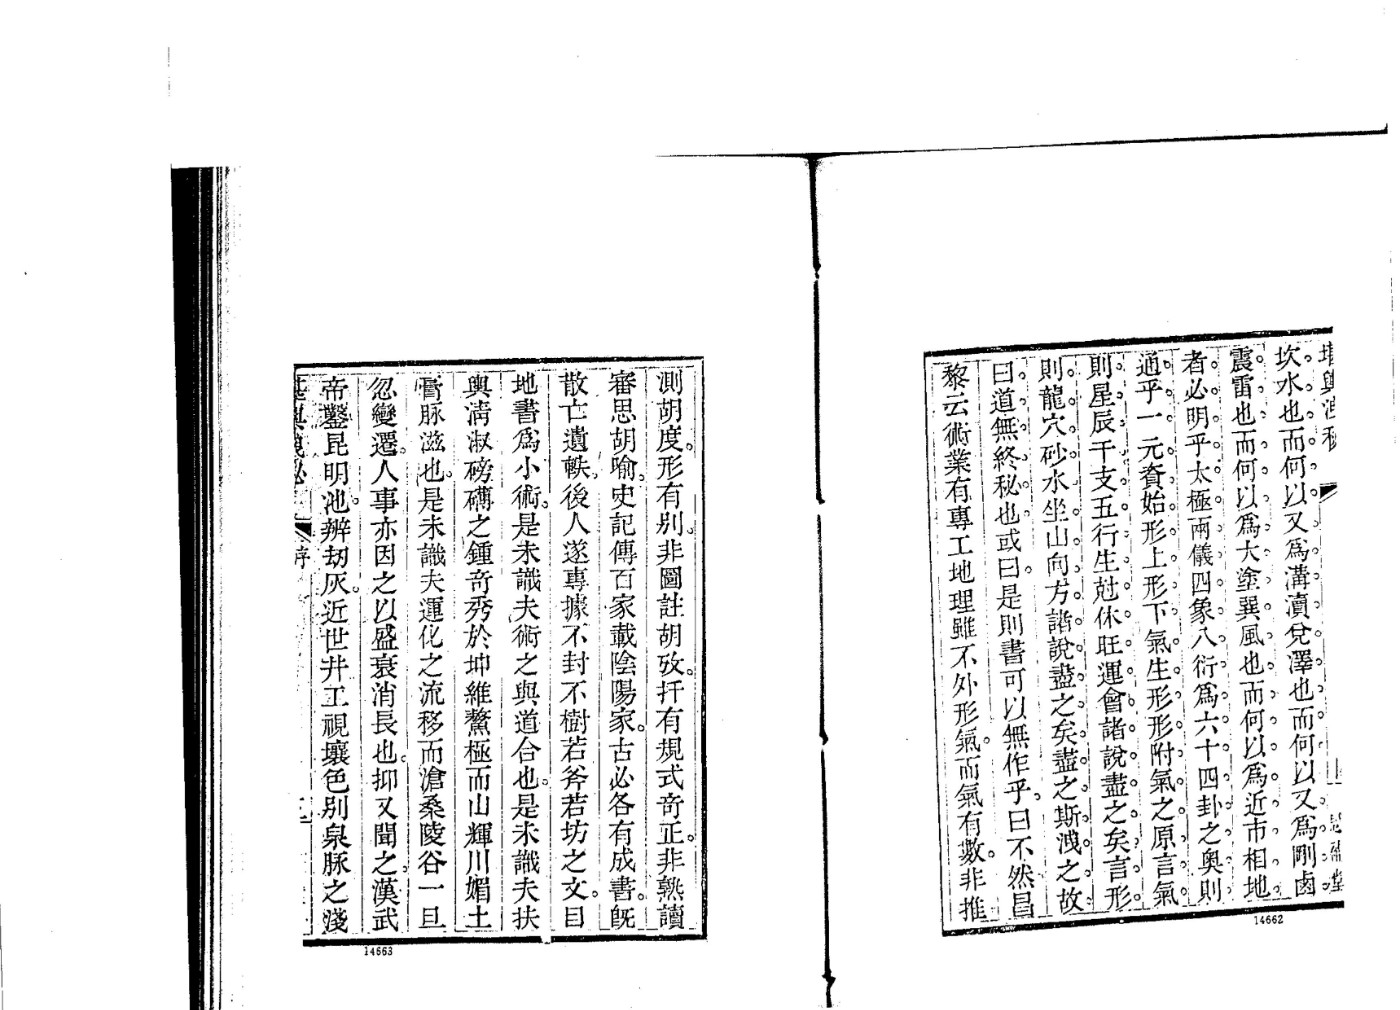 坎水也而何以又為溝瀆兌澤也而何以又為剛鹵
震雷也而何以為大塗巽風也而何以為近市相地
者必明乎太極兩儀四象八衍為六十四卦之奧則
通乎一元資始形上形下氣生形形附氣之原言氣
則星辰干支五行生尅休旺運會諸說盡之矣言形
則龍穴砂水坐山向方諸說盡之矣盡之斯洩之故
曰道無終秘也或曰是則書可以無作乎曰不然昌
黎云術業有專工地理雖不外形氣而氣有數非推
14662
測胡度形有別非圖註胡攷扦有規式奇正非熟讀
審思胡喻史記傳百家載陰陽家古必各有成書旣
散亡遺軼後人遂專據不封不樹若斧若坊之文目
地書爲小術是未識夫術之與道合也是未識夫扶
輿淸淑磅礴之鍾奇秀於坤維鰲極而山輝川媚土
膏脉滋也是未識夫運化之流移而滄桑陵谷一旦
忽變遷人事亦因之以盛衰消長也抑又聞之漢武
帝鑿昆明池辨刼灰近世井工視壤色別泉脉之淺
序
14663